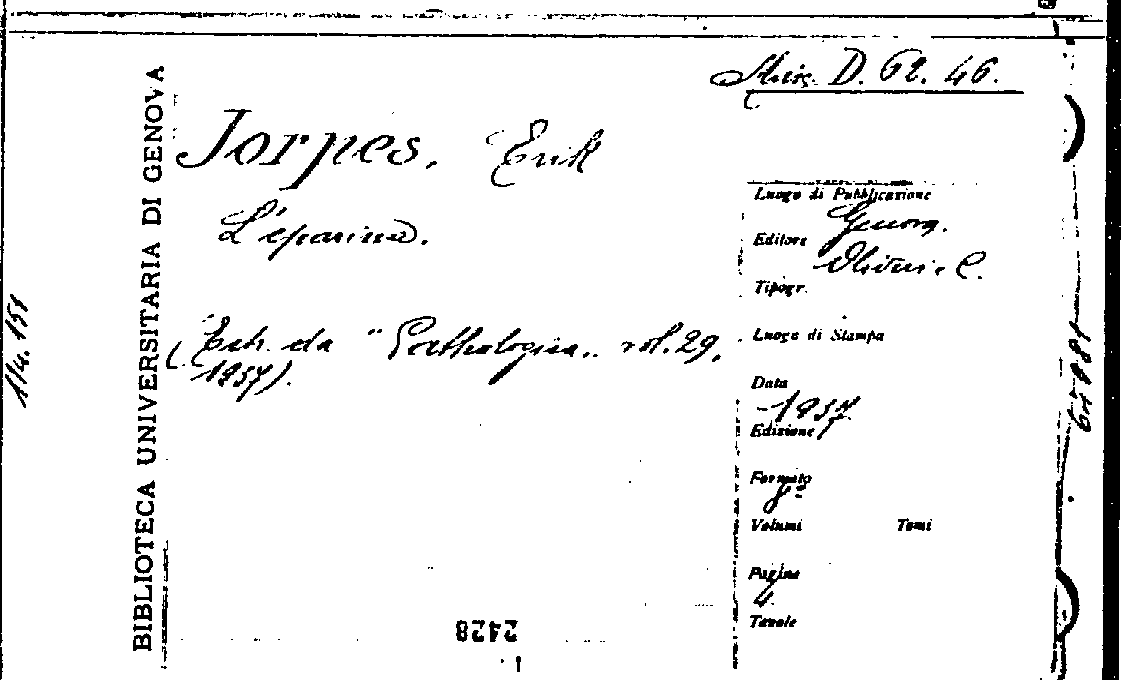 Misc. D. 62. 46.
Jorpes, Erik
L'eparina.
(Estr. da "Pathologica„ vol. 29,
1937).
BIBLIOTECA UNIVERSITARIA DI GENOVA
Luogo di Pubblicazione
Genova.
Editore
Olivieri C.
Tipogr.
Luogo di Stampa
Data
1937
Edizione
Formato
8º
Volumi Tomi
Pagine
4.
Tavole
2428